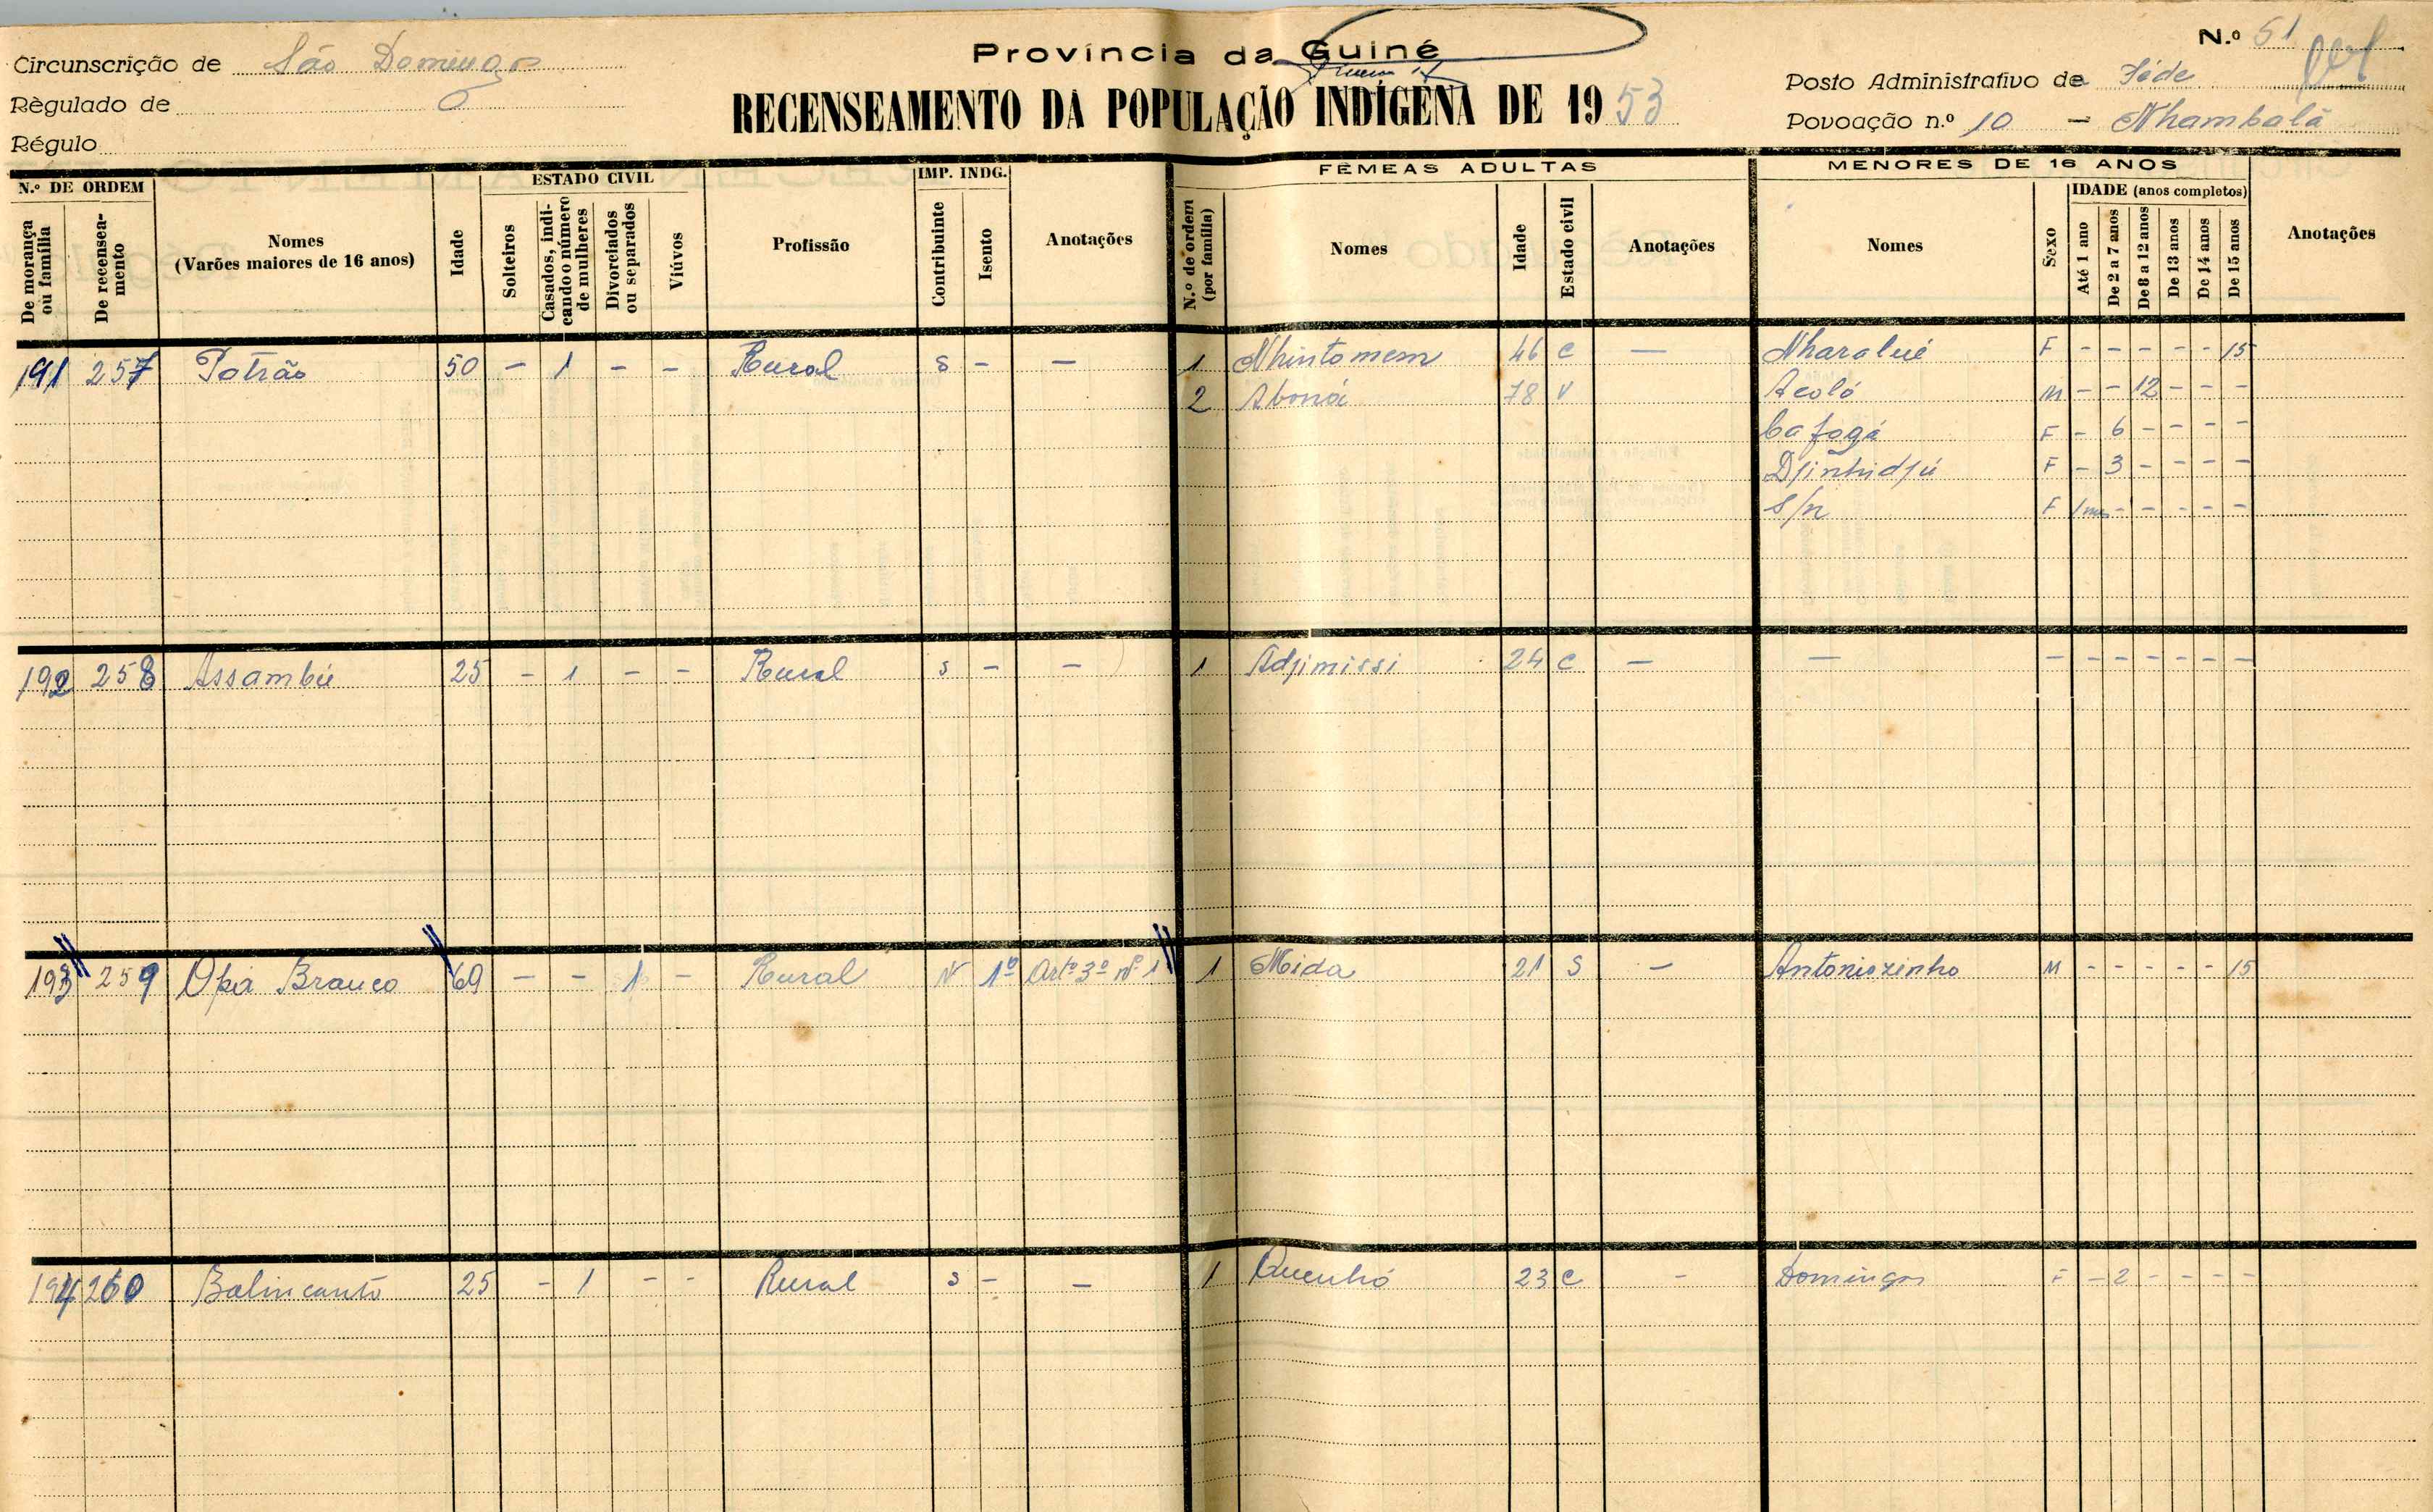 Província da Guiné
RECENSEAMENTO DA POPULAÇÃO INDÍGENA DE 1953
Circunscrição de São Domingos
Règulado de
Régulo
N.º 51
Posto Administrativo de
Povoação n.º 10 - Nhambalã
N.º DE ORDEM
De morança ou família
De recenseamento
Nomes
(Varões maiores de 16 anos)
Idade
ESTADO CIVIL
Solteiros
Casados, indicando o número de mulheres
Divorciados ou separados
Viúvos
Profissão
IMP. INDG.
Contribuinte
Isento
Anotações
FÊMEAS ADULTAS
N.º de ordem (por família)
Nomes
Idade
Estado civil
Anotações
MENORES DE 16 ANOS
Nomes
Sexo
IDADE (anos completos)
Até 1 ano
De 2 a 7 anos
De 8 a 12 anos
De 13 anos
De 14 anos
De 15 anos
Anotações
191 257 Patrão 50 - 1 - - Rural S - - 1 Nhintomem 46 C - Nharalué F - - - - - 15
2 Abonói 78 V Acoló M - - 12 - - -
Cafogá F - 6 - - - -
Djinhidjú F - 3 - - - -
S/n F - - - - -
192 258 Assambú 25 - 1 - - Rural S - - 1 Adjimissi 24 C - - - - - - - - -
193 259 Opá Branco 69 - - 1 - Rural N 1º Artº 3º nº 1 1 Mida 21 S - Antoniozinho M - - - - - 15
194 260 Balincanto 25 - 1 - - Rural S - - 1 Quenhó 23 C - Domingas F - 2 - - - -